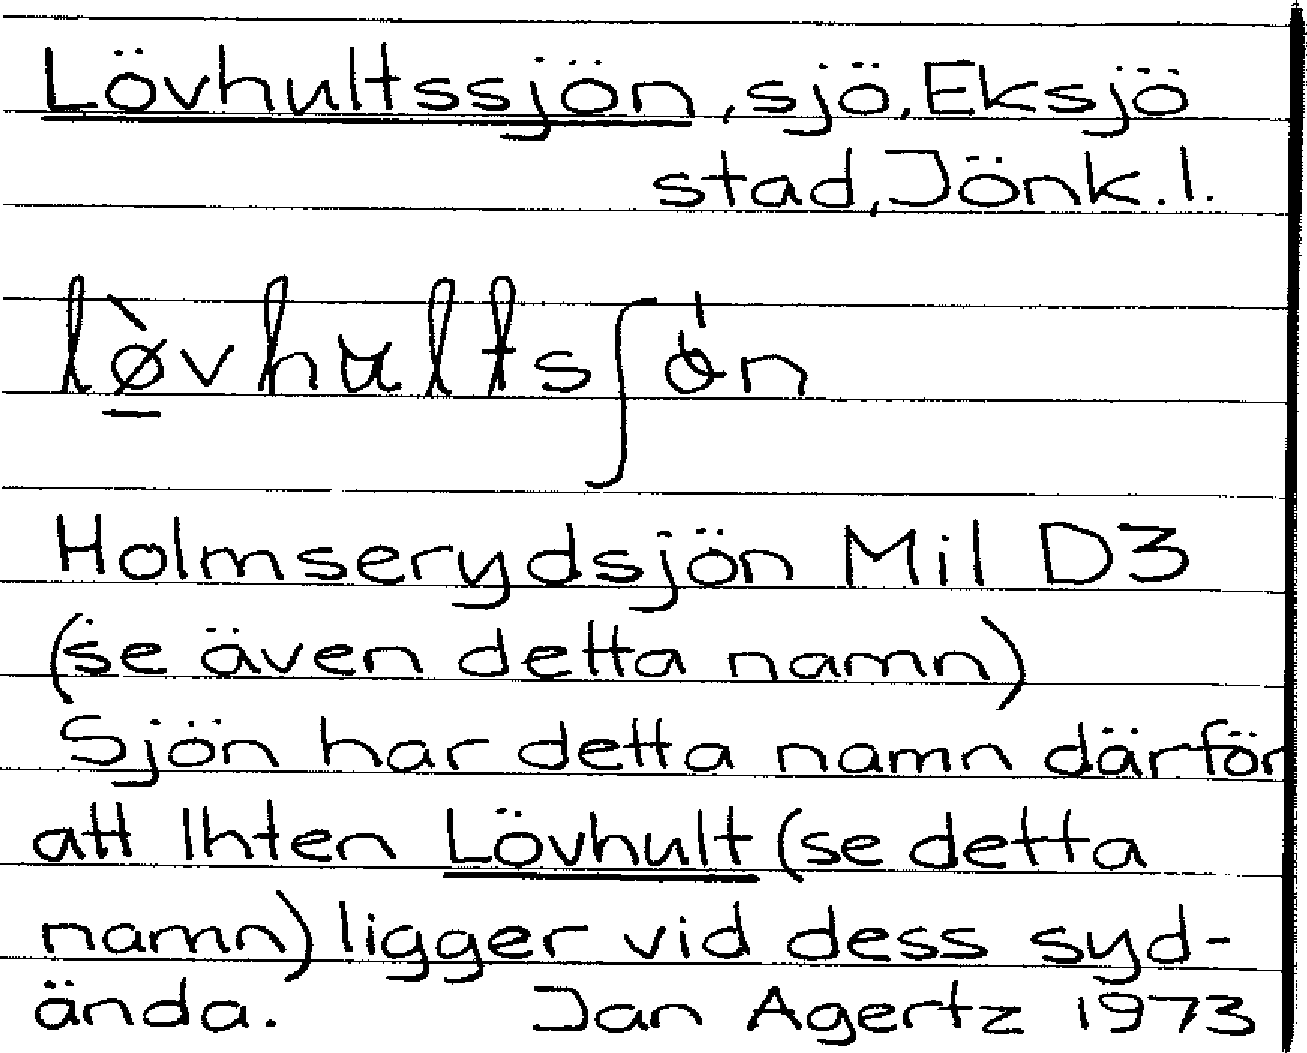 Lövhultssjön, sjö, Eksjö
stad, Jönk. l.
Holmserydsjön Mil D3
(se även detta namn)
Sjön har detta namn därför
att lhten Lövhult (se detta
namn) ligger vid dess syd-
ända. Jan Agertz 1973